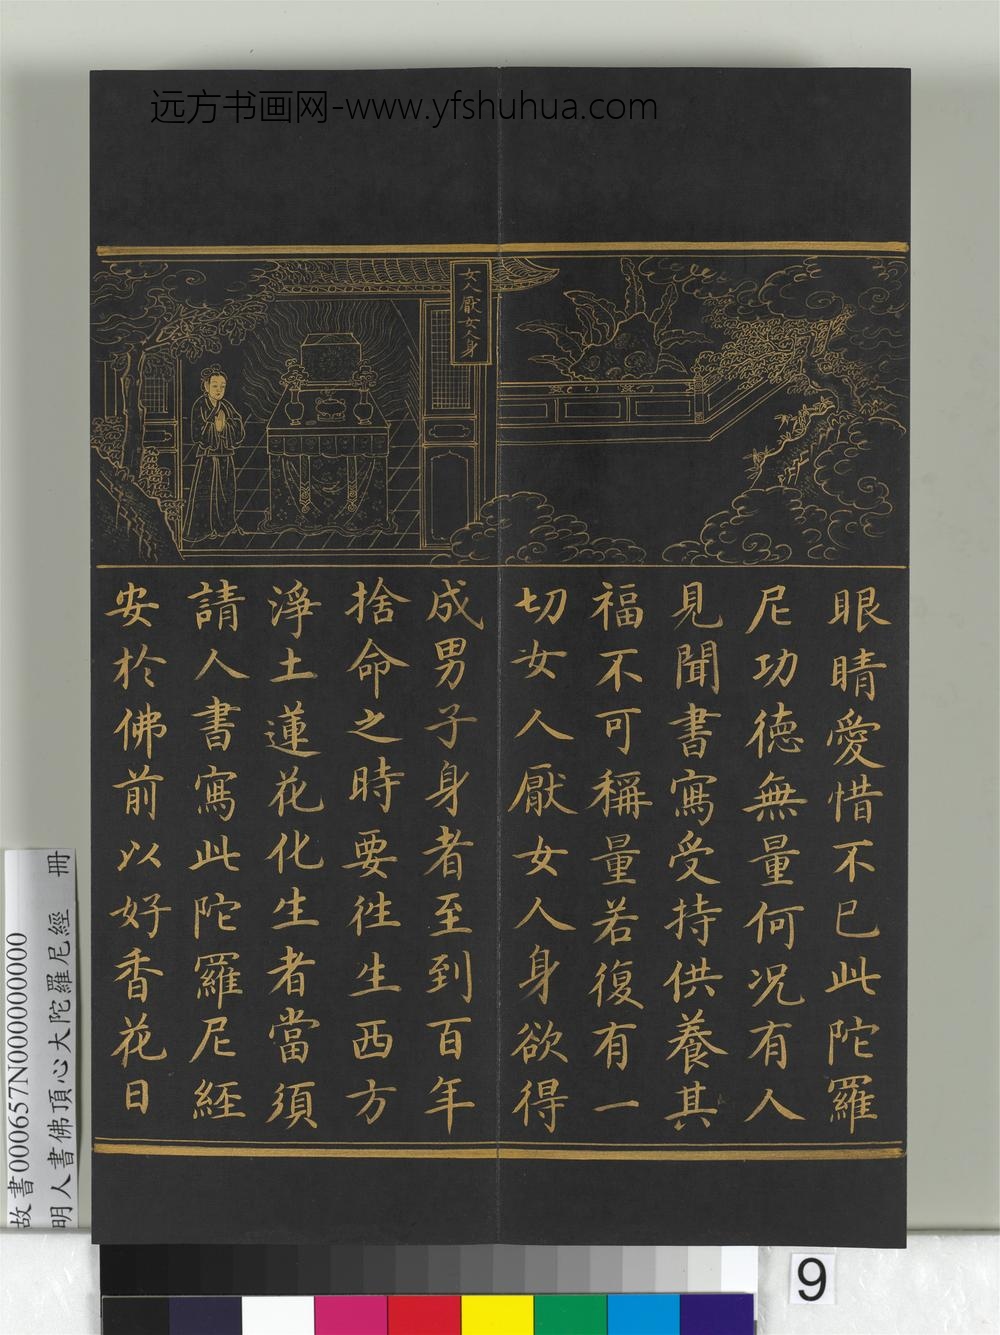 远方书画网-www.yfshuhua.com
女人厭女身
眼睛愛惜不已此陀羅
尼功德無量何况有人
見聞書寫受持供養其
福不可稱量若復有一
切女人厭女人身欲得
成男子身者至到百年
捨命之時要徃生西方
淨土蓮花化生者當須
請人書寫此陀羅尼經
安於佛前以好香花日
故書000657N000000000
明人書佛頂心大陀羅尼經 冊
9